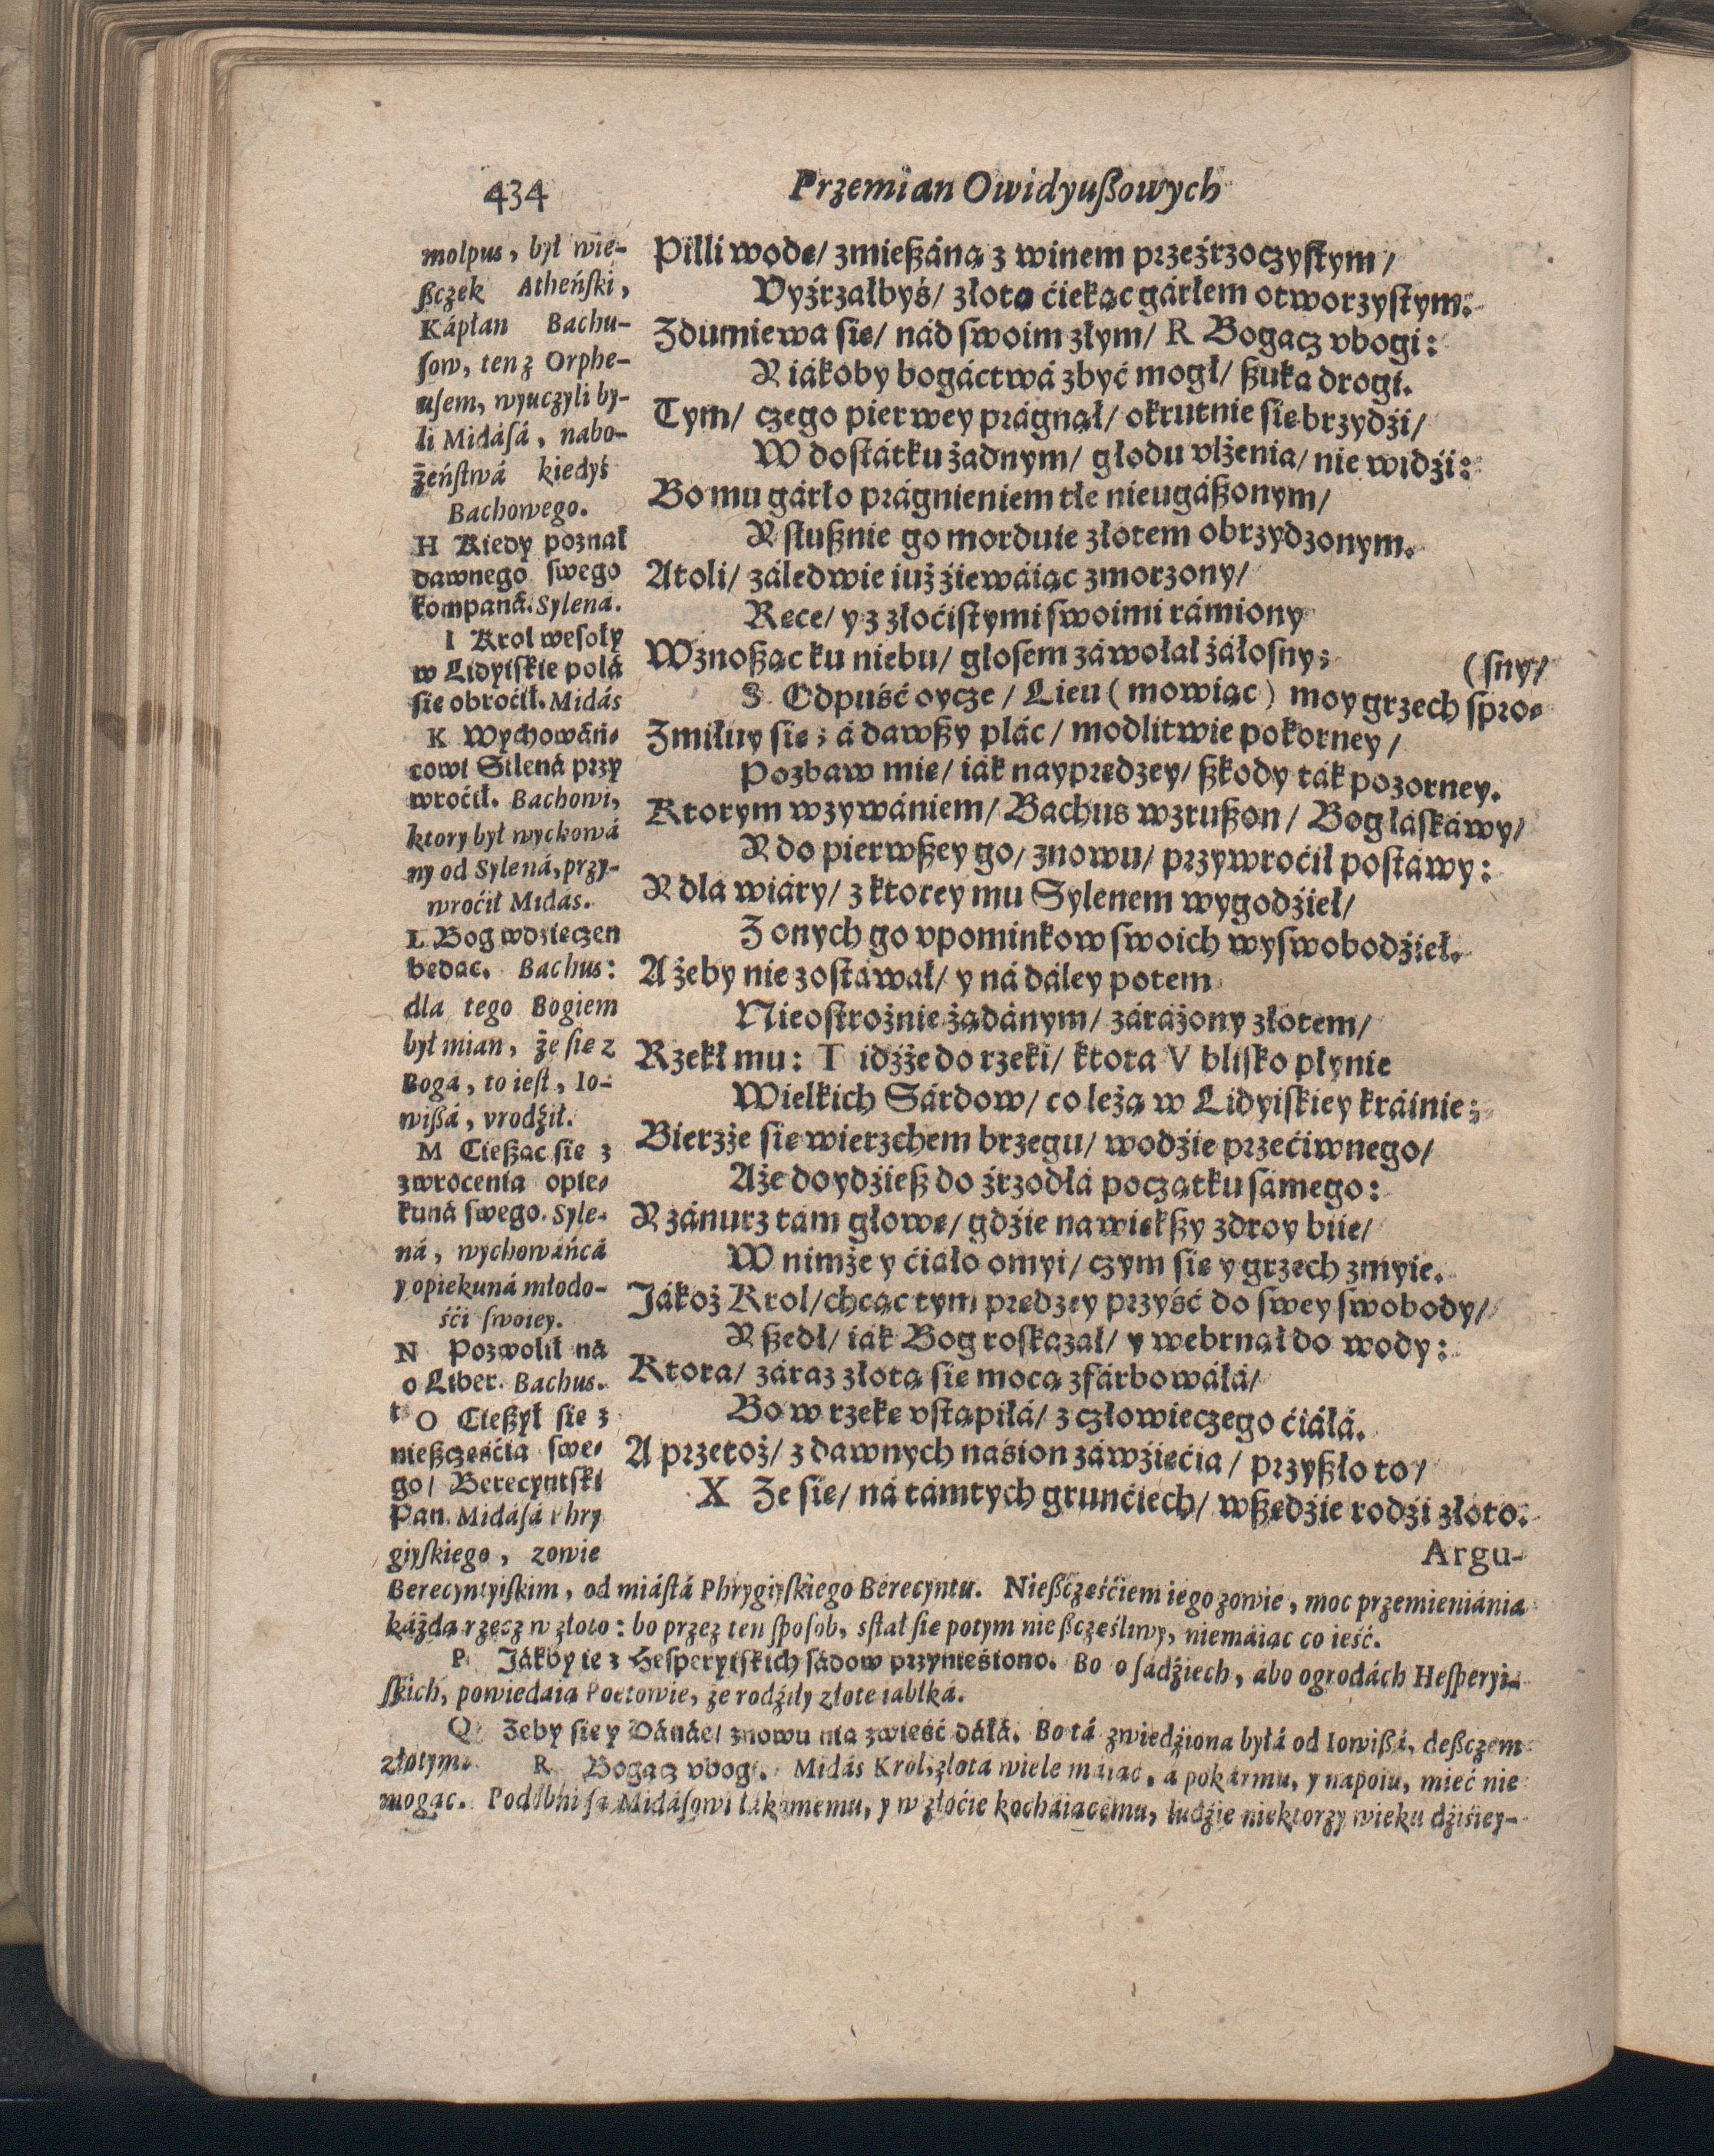 434
Przemian Owidyuſzowych
molpus, był wie-
ſzczek Atheńſki,
Káptan Bachu-
ſow, ten z Orphe-
uſem, wyuczyli by-
li Midáſá, nabo-
żeńſtwá kiedyś
Bachowego.
H Kiedy poznał
dawnego ſwego
kompaná. Sylena.
I Krol weſoły
w Lidyiſkie polá
ſie obroćił. Midás
K Wychowáń-
cowi Silená przy
wroćił. Bachowi,
ktory był wychowá
ny od Sylená, przy-
wroćił Midas.
L Bog wdzieczen
bedac. Bachus:
dla tego Bogiem
był mian, że ſie z
Boga, to ieſt, Io-
wiſzá, vrodźił.
M Cieſząc ſie z
zwrocenia opie-
kuná ſwego. Syle-
ná, wychowáńcá
y opiekuná młodo-
śći ſwoiey.
N Pozwolił ná
to Liber. Bachus.
O Cieſzył ſie z
nieſzczęśćia ſwe-
go/ Berecyntſki
Pan. Midáſá Phry
giyſkiego, zowie
Pilli wodę/ zmieſzáną z winem przeźrzoczyſtym/
Vyźrzałbyś/ złoto ćiekąc gárłem otworzyſtym.
Zdumiewa ſie/ nád ſwoim złym/ R Bogacz vbogi:
Y iákoby bogáctwá zbyć mogł/ ſzuka drogi.
Tym/ czego pierwey prágnął/ okrutnie ſie brzydźi/
W doſtátku żadnym/ głodu vlżenia/ nie widźi:
Bo mu gárło prágnieniem tle nieugáſzonym/
Y ſłuſznie go morduie złotem obrzydzonym.
Atoli/ záledwie iuż źiewáiąc zmorzony/
Ręce/ y z złoćiſtymi ſwoimi rámiony
Wznoſząc ku niebu/ głoſem záwołał żáłoſny;
(ſny/
S Odpuść oycze/ Lieu (mowiąc) moy grzech ſpro-
Zmiłuy ſię; á dawſzy plác/ modlitwie pokorney/
Pozbaw mie/ iák nayprędzey/ ſzkody ták pozorney.
Ktorym wzywániem/ Bachus wzruſzon/ Bog łáſkáwy/
Y do pierwſzey go/ znowu/ przywroćił poſtáwy:
Y dla wiáry/ z ktorey mu Sylenem wygodźieł/
Z onych go vpominkow ſwoich wyſwobodźieł.
A żeby nie zoſtáwał/ y ná dáley potem
Nieoſtrożnie żądánym/ záráżony złotem/
Rzekł mu: T idźże do rzeki/ ktora V bliſko płynie
Wielkich Sárdow/ co leżą w Lidyiſkiey kráinie;
Bierzże ſie wierzchem brzegu/ wodźie przećiwnego/
Aże doydźieſz do źrzodłá początku ſámego:
Y zánurz tám głowę/ gdźie nawiękſzy zdroy biie/
W nimże y ćiáło omyi/ czym ſie y grzech zmyie.
Jákoż Krol/ chcąc tym prędzey przyść do ſwey ſwobody/
Y ſzedł/ iák Bog roſkazał/ y webrnął do wody:
Ktora/ záraz złotą ſie mocą zfárbowáłá/
Bo w rzekę vſtąpiłá/ z człowieczego ćiáłá.
A przetoż/ z dawnych naśion záwźięćia/ przyſzło to/
X Ze ſie/ ná támtych grunćiech/ wſzędźie rodźi złoto.
Argu-
Berecyntyiſkim, od miáſtá Phrygiyſkiego Berecyntu. Nieſzczęśćiem iego zowie, moc przemieniánia
káżdą rzecz w złoto: bo przez ten ſpoſob, sſtał ſie potym nieſzczęśliwy, niemáiąc co ieść.
P Jákby ie z Heſperyiſkich ſádow przynieśiono. Bo o ſádźiech, ábo ogrodách Heſperyi-
ſkich, powiedaią Poetowie, że rodźiły złote iablká.
Q Zeby ſie y Dánáe/ znowu nią zwieść dáłá. Bo tá zwiedźiona byłá od Iowiſzá, deſzczem
złotym. R Bogacz vbogi. Midás Krol, złotá wiele máiąc, á pokármu, y napoiu, mieć nie
mogąc. Podobni ſą Midáſowi łákomemu, y w złoćie kocháiącemu, ludźie niektorzy wieku dźiśiey-